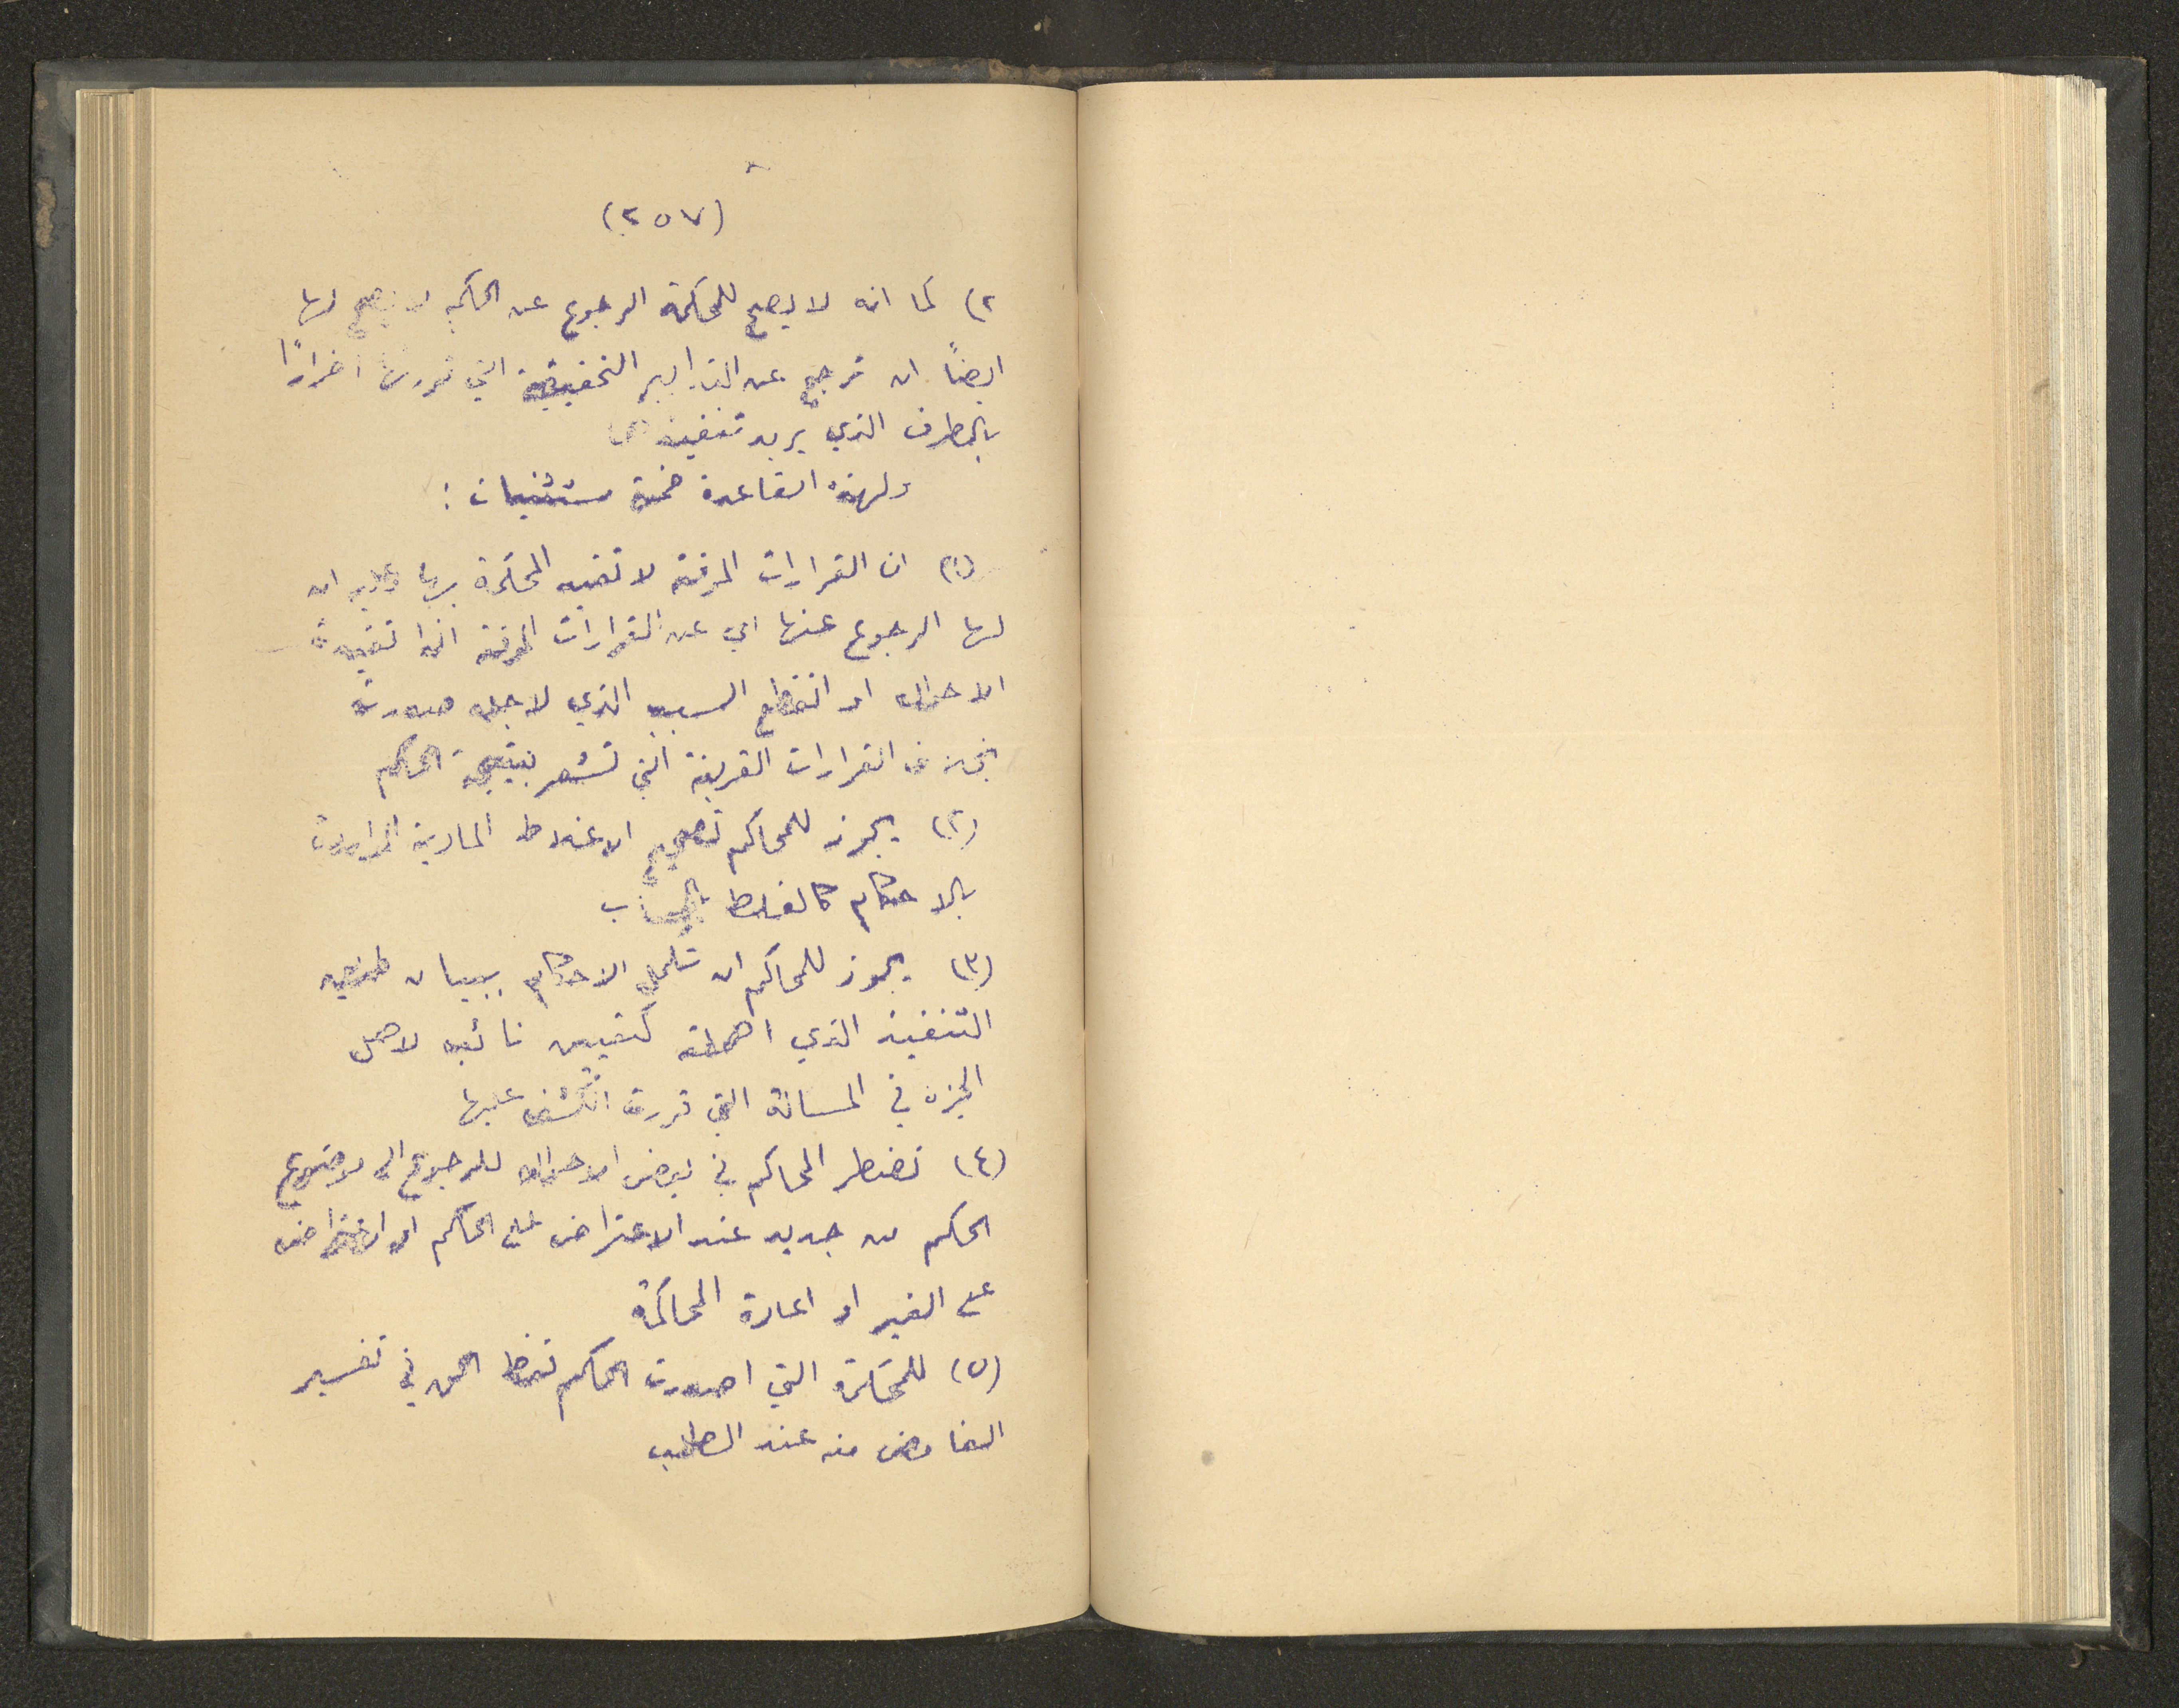 (٢٥٧)
٢) كما انه لا يصح للمحكمة الرجوع عن الحكم لا يصح لها
ايضًا ان ترجع عن التدابير التحقيقية التي قررتها اضرارًا
بالطرف الذي يريد تنفيذها
ولهذه القاعدة خمسة مستثنيات :
(١) ان القرارات المؤقتة لا تتقيد المحكمة بها وعليه ان
لها الرجوع عنها اي عن القرارات المؤقتة اذا تغيرت
الاحوال او انقطع السبب الذي لاجله صدرت
بخلاف القرارات القرينة التي تشعر بنتيجة الحكم
(٢) يجوز للمحاكم تصحيح الاغلاط المادية الواردة
بالاحكام كالغلط بالحساب
(٣) يجوز للمحاكم ان تكمل الاحكام ببيان طريق
التنفيذ الذي اهملته كتعيين نائب لاهل
الخبرة في المسالة التي قررت الكشف عليها
(٤) تضطر المحاكم في بعض الاحوال للرجوع الى موضوع
الحكم من جديد عند الاعتراض على الحكم او اعتراض
على الغير او اعادة المحاكمة
(٥) للمحكمة التي اصدرت الحكم فقط الحق في تفسير
الغامض منه عند الطلب